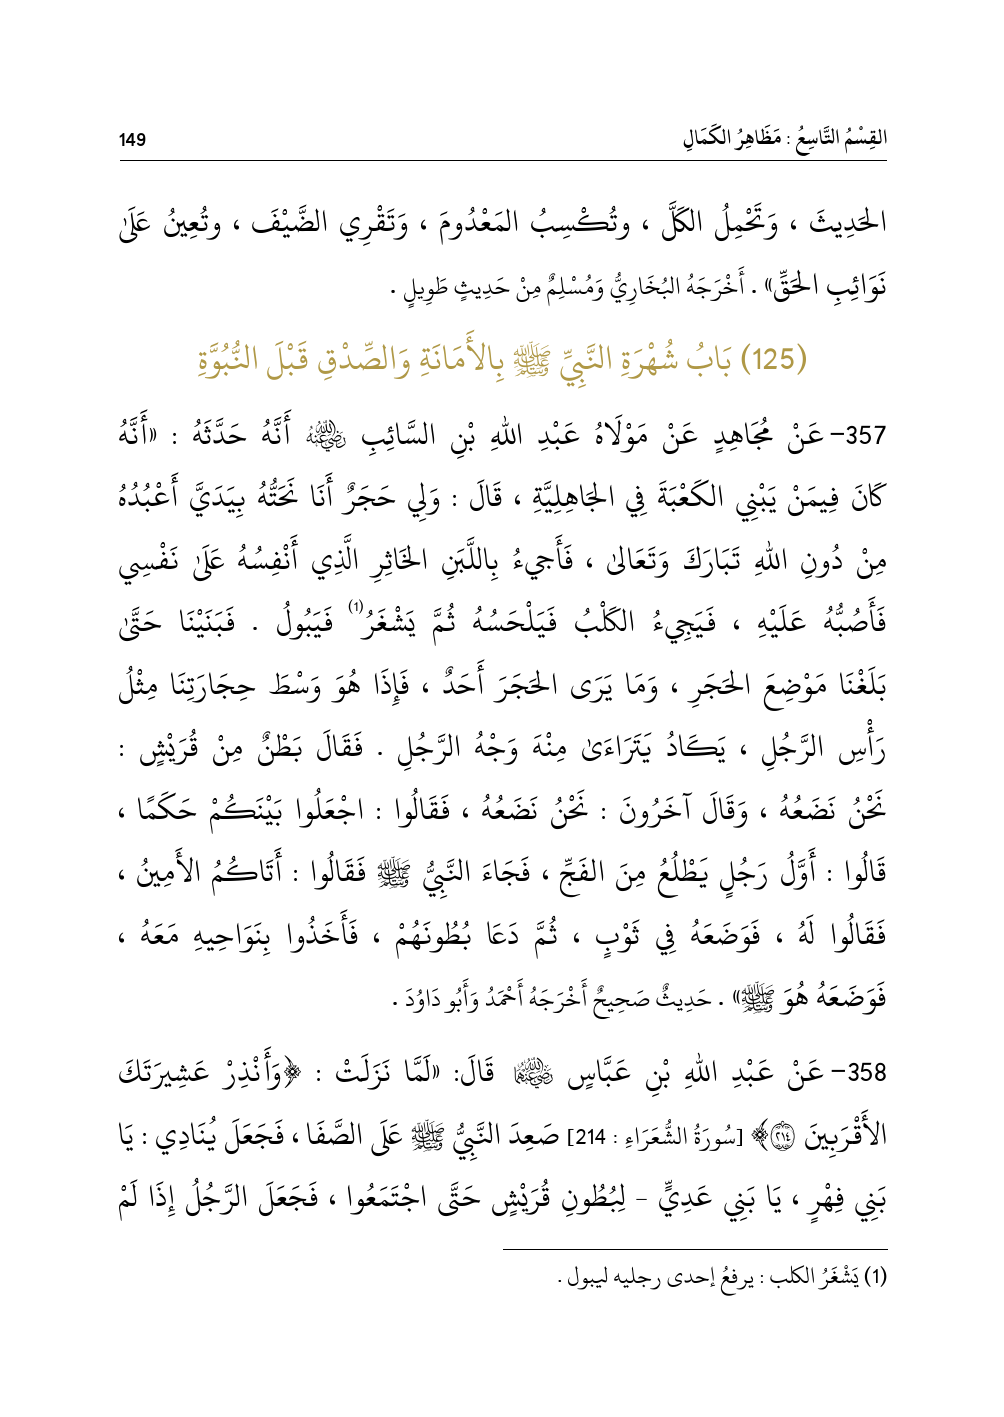 القِسْمُ التَّاسِعُ : مَظَاهِرُ الكَمَالِ 149
الحَدِيثَ ، وَتَحْمِلُ الكَلَّ ، وتُكْسِبُ المَعْدُومَ ، وَتَقْرِي الضَّيْفَ ، وتُعِينُ عَلَىٰ
نَوَائِبِ الحَقِّ» . أَخْرَجَهُ البُخَارِيُّ وَمُسْلِمٌ مِنْ حَدِيثٍ طَوِيلٍ .
(125) بَابُ شُهْرَةِ النَّبِيِّ ﷺ بِالأَمَانَةِ وَالصِّدْقِ قَبْلَ النُّبُوَّةِ
357- عَنْ مُجَاهِدٍ عَنْ مَوْلَاهُ عَبْدِ اللهِ بْنِ السَّائِبِ رضي الله عنه أَنَّهُ حَدَّثَهُ : «أَنَّهُ
كَانَ فِيمَنْ يَبْنِي الكَعْبَةَ فِي الجَاهِلِيَّةِ ، قَالَ : وَلِي حَجَرٌ أَنَا نَحَتُّهُ بِيَدَيَّ أَعْبُدُهُ
مِنْ دُونِ اللهِ تَبَارَكَ وَتَعَالىٰ ، فَأَجيءُ بِاللَّبَنِ الخَاثِرِ الَّذِي أَنْفِسُهُ عَلَىٰ نَفْسِي
فَأَصُبُّهُ عَلَيْهِ ، فَيَجِيءُ الكَلْبُ فَيَلْحَسُهُ ثُمَّ يَشْغَرُ(1) فَيَبُولُ . فَبَنَيْنَا حَتَّىٰ
بَلَغْنَا مَوْضِعَ الحَجَرِ ، وَمَا يَرَى الحَجَرَ أَحَدٌ ، فَإِذَا هُوَ وَسْطَ حِجَارَتِنَا مِثْلُ
رَأْسِ الرَّجُلِ ، يَكَادُ يَتَرَاءَىٰ مِنْهَ وَجْهُ الرَّجُلِ . فَقَالَ بَطْنٌ مِنْ قُرَيْشٍ :
نَحْنُ نَضَعُهُ ، وَقَالَ آخَرُونَ : نَحْنُ نَضَعُهُ ، فَقَالُوا : اجْعَلُوا بَيْنَكُمْ حَكَمًا ،
قَالُوا : أَوَّلُ رَجُلٍ يَطْلُعُ مِنَ الفَجِّ ، فَجَاءَ النَّبِيُّ ﷺ فَقَالُوا : أَتَاكُمُ الأَمِينُ ،
فَقَالُوا لَهُ ، فَوَضَعَهُ فِي ثَوْبٍ ، ثُمَّ دَعَا بُطُونَهُمْ ، فَأَخَذُوا بِنَوَاحِيهِ مَعَهُ ،
فَوَضَعَهُ هُوَ ﷺ» . حَدِيثٌ صَحِيحٌ أَخْرَجَهُ أَحْمَدُ وَأَبُو دَاوُدَ .
358- عَنْ عَبْدِ اللهِ بْنِ عَبَّاسٍ رضي الله عنهما قَالَ: «لَمَّا نَزَلَتْ : ﴿وَأَنْذِرْ عَشِيرَتَكَ
الأَقْرَبِينَ ٢١٤﴾ [سُورَةُ الشُّعَرَاءِ : 214] صَعِدَ النَّبِيُّ ﷺ عَلَى الصَّفَا ، فَجَعَلَ يُنَادِي : يَا
بَنِي فِهْرٍ ، يَا بَنِي عَدِيٍّ - لِبُطُونِ قُرَيْشٍ حَتَّى اجْتَمَعُوا ، فَجَعَلَ الرَّجُلُ إِذَا لَمْ
(1) يَشْغَرُ الكلب : يرفعُ إحدى رجليه ليبول .